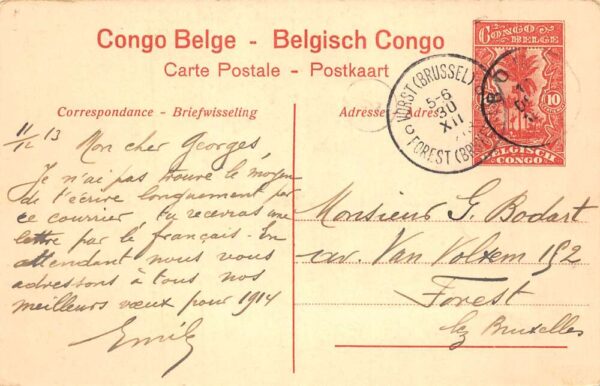 Congo Belge - Belgisch Congo
Carte Postale - Postkaart
Correspondance - Briefwisseling
Adresse: Adresse:
CONGO BELGE
10
BELGISCH CONGO
VORST (BRUSSEL)
5-6
30
XII
FOREST
11/12 13
Mon cher Georges,
Je n'ai pas trouvé le moyen
de t'écrire longuement par
ce courrier, tu recevras une
lettre par le français. En
attendant nous vous
adressons à tous nos
meilleurs vœux pour 1914
Emile
Monsieur G. Bodart
av. Van Volxem 192
Forest
lez Bruxelles